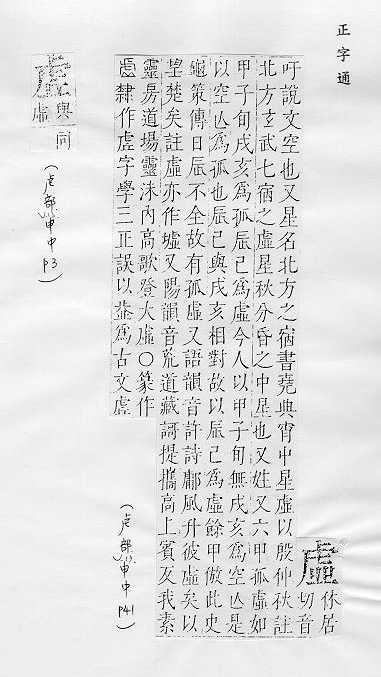 正字通
虛 休居切音
吁說文空也又星名北方之宿書堯典宵中星虛以殷仲秋註
北方玄武七宿之虛星秋分昏之中星也又姓又六甲孤虛如
甲子旬戌亥爲孤辰巳爲虛今人以甲子旬無戌亥爲空亾是
以空亾爲孤也辰巳與戌亥相對故以辰巳爲虛餘甲倣此史
龜策傳日辰不全故有孤虛又語韻音許詩鄘風升彼虛矣以
望楚矣註虛亦作墟又陽韻音荒道藏謌提攜高上賓友我素
靈房道場靈洙內高歌登大虛○篆作
隸作虛字學三正誤以爲古文虛
(虍部 申中 P41)
與虛同
(虍部 申中 P3)